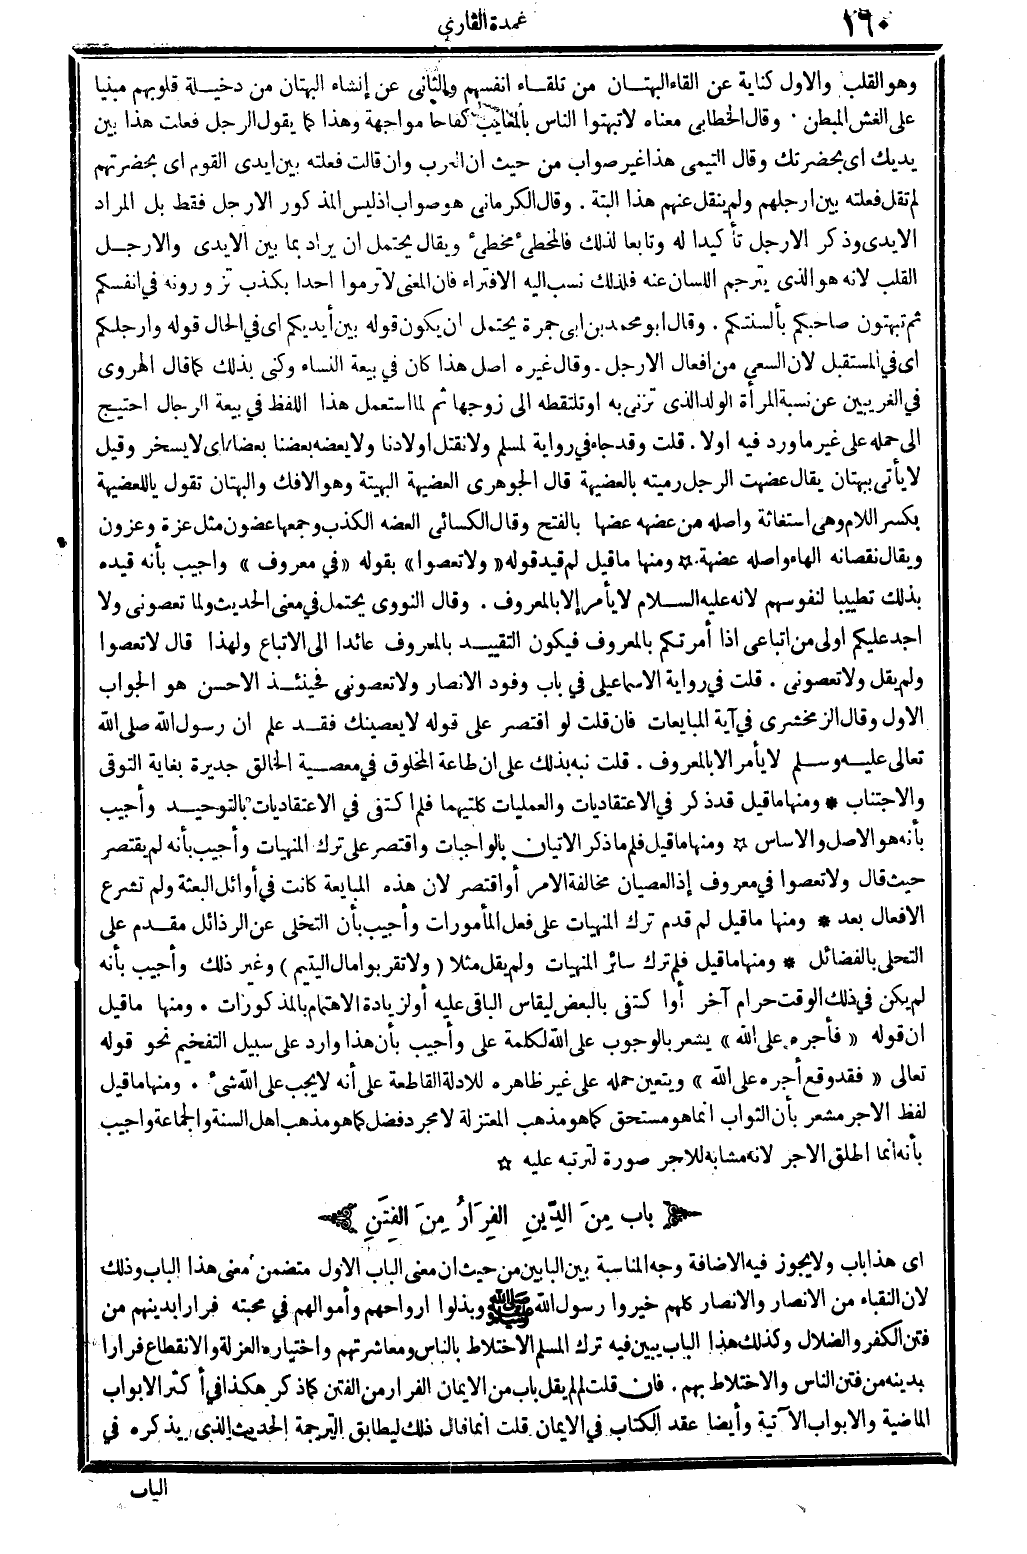 ١٦٠
عمدة القاري
وهو القلب والاول كناية عن القاء البهتان من تلقاء انفسهم والثانى عن إنشاء البهتان من دخيلة قلوبهم مبنيا
على الغش المبطن . وقال الخطابى معناه لا تبهتوا الناس بالمعايب كفاحا مواجهة وهذا كما يقول الرجل فعلت هذا بين
يديك اى بحضرتك وقال التيمى هذا غير صواب من حيث ان العرب وان قالت فعلته بين ايدى القوم اى بحضرتهم
لم تقل فعلته بين ارجلهم ولم ينقل عنهم هذا البتة . وقال الكرمانى هو صواب اذ ليس المذكور الارجل فقط بل المراد
الايدى وذكر الارجل تأكيدا له وتابعا لذلك فالمخطىء مخطىء ويقال يحتمل ان يراد بما بين الايدى والارجل
القلب لانه هو الذى يترجم اللسان عنه فلذلك نسب اليه الافتراء فان المعنى لا ترموا احدا بكذب تزورونه في انفسكم
ثم تبهتون صاحبكم بألسنتكم . وقال ابو محمد بن ابى جمرة يحتمل ان يكون قوله بين أيديكم اى في الحال قوله وارجلكم
اى في المستقبل لان السعى من افعال الارجل . وقال غيره اصل هذا كان في بيعة النساء وكنى بذلك كما قال الهروى
في الغريبين عن نسبة المرأة الولد الذى تزنى به او تلتقطه الى زوجها ثم لما استعمل هذا اللفظ في بيعة الرجال احتيج
الى حمله على غير ما ورد فيه اولا . قلت وقد جاء في رواية لمسلم ولا نقتل اولادنا ولا يعضه بعضنا بعضا اى لا يسخر وقيل
لا يأتى ببهتان يقال عضهت الرجل رميته بالعضيهة قال الجوهرى العضيهة البهيتة وهو الافك والبهتان تقول يا للعضيهة
بكسر اللام وهى استغاثة واصله من عضهه عضها بالفتح وقال الكسائى العضه الكذب وجمعها عضون مثل عزة وعزون
ويقال نقصانه الهاء واصله عضهة ☆ ومنها ما قيل لم قيد قوله « ولا تعصوا » بقوله « في معروف » واجيب بأنه قيده
بذلك تطييبا لنفوسهم لانه عليه السلام لا يأمر إلا بالمعروف . وقال النووى يحتمل في معنى الحديث ولما تعصونى ولا
اجد عليكم اولى من اتباعى اذا أمرتكم بالمعروف فيكون التقييد بالمعروف عائدا الى الاتباع ولهذا قال لا تعصوا
ولم يقل ولا تعصونى . قلت في رواية الاسماعيلى في باب وفود الانصار ولا تعصونى فحينئذ الاحسن هو الجواب
الاول وقال الزمخشرى في آية المبايعات فان قلت لو اقتصر على قوله لا يعصينك فقد علم ان رسول الله صلى الله
تعالى عليه وسلم لا يأمر الا بالمعروف . قلت نبه بذلك على ان طاعة المخلوق في معصية الخالق جديرة بغاية التوقى
والاجتناب * ومنها ما قيل قد ذكر في الاعتقاديات والعمليات كلتيهما فلم اكتفى في الاعتقاديات بالتوحيد وأجيب
بأنه هو الاصل والاساس ☆ ومنها ما قيل فلم ما ذكر الاتيان بالواجبات واقتصر على ترك المنهيات وأجيب بأنه لم يقتصر
حيث قال ولا تعصوا في معروف إذ العصيان مخالفة الامر أو اقتصر لان هذه المبايعة كانت في أوائل البعثة ولم تشرع
الافعال بعد * ومنها ما قيل لم قدم ترك المنهيات على فعل المأمورات وأجيب بأن التخلى عن الرذائل مقدم على
التحلى بالفضائل * ومنها ما قيل فلم ترك سائر المنهيات ولم يقل مثلا ( ولا تقربوا مال اليتيم ) وغير ذلك وأجيب بأنه
لم يكن في ذلك الوقت حرام آخر أو اكتفى بالبعض ليقاس الباقى عليه أو لزيادة الاهتمام بالمذكورات . ومنها ما قيل
ان قوله « فأجره على الله » يشعر بالوجوب على الله لكلمة على وأجيب بأن هذا وارد على سبيل التفخيم نحو قوله
تعالى « فقد وقع أجره على الله » ويتعين حمله على غير ظاهره للادلة القاطعة على أنه لا يجب على الله شىء . ومنها ما قيل
لفظ الاجر مشعر بأن الثواب انما هو مستحق كما هو مذهب المعتزلة لا مجرد فضل كما هو مذهب اهل السنة والجماعة واجيب
بأنه انما اطلق الاجر لانه مشابه للاجر صورة لترتبه عليه ☆
باب مِنَ الدِّينِ الفِرَارُ مِنَ الفِتَنِ
اى هذا باب ولا يجوز فيه الاضافة وجه المناسبة بين البابين من حيث ان معنى الباب الاول متضمن معنى هذا الباب وذلك
لان النقباء من الانصار والانصار كلهم خيروا رسول الله ﷺ وبذلوا ارواحهم وأموالهم في محبته فرارا بدينهم من
فتن الكفر والضلال وكذلك هذا الباب يبين فيه ترك المسلم الاختلاط بالناس ومعاشرتهم واختياره العزلة والانقطاع فرارا
بدينه من فتن الناس والاختلاط بهم . فان قلت لم لم يقل باب من الايمان الفرار من الفتن كما ذكر هكذا في أكثر الابواب
الماضية والابواب الآتية وأيضا عقد الكتاب في الايمان قلت انما قال ذلك ليطابق الترجمة الحديث الذى يذكره في
الباب